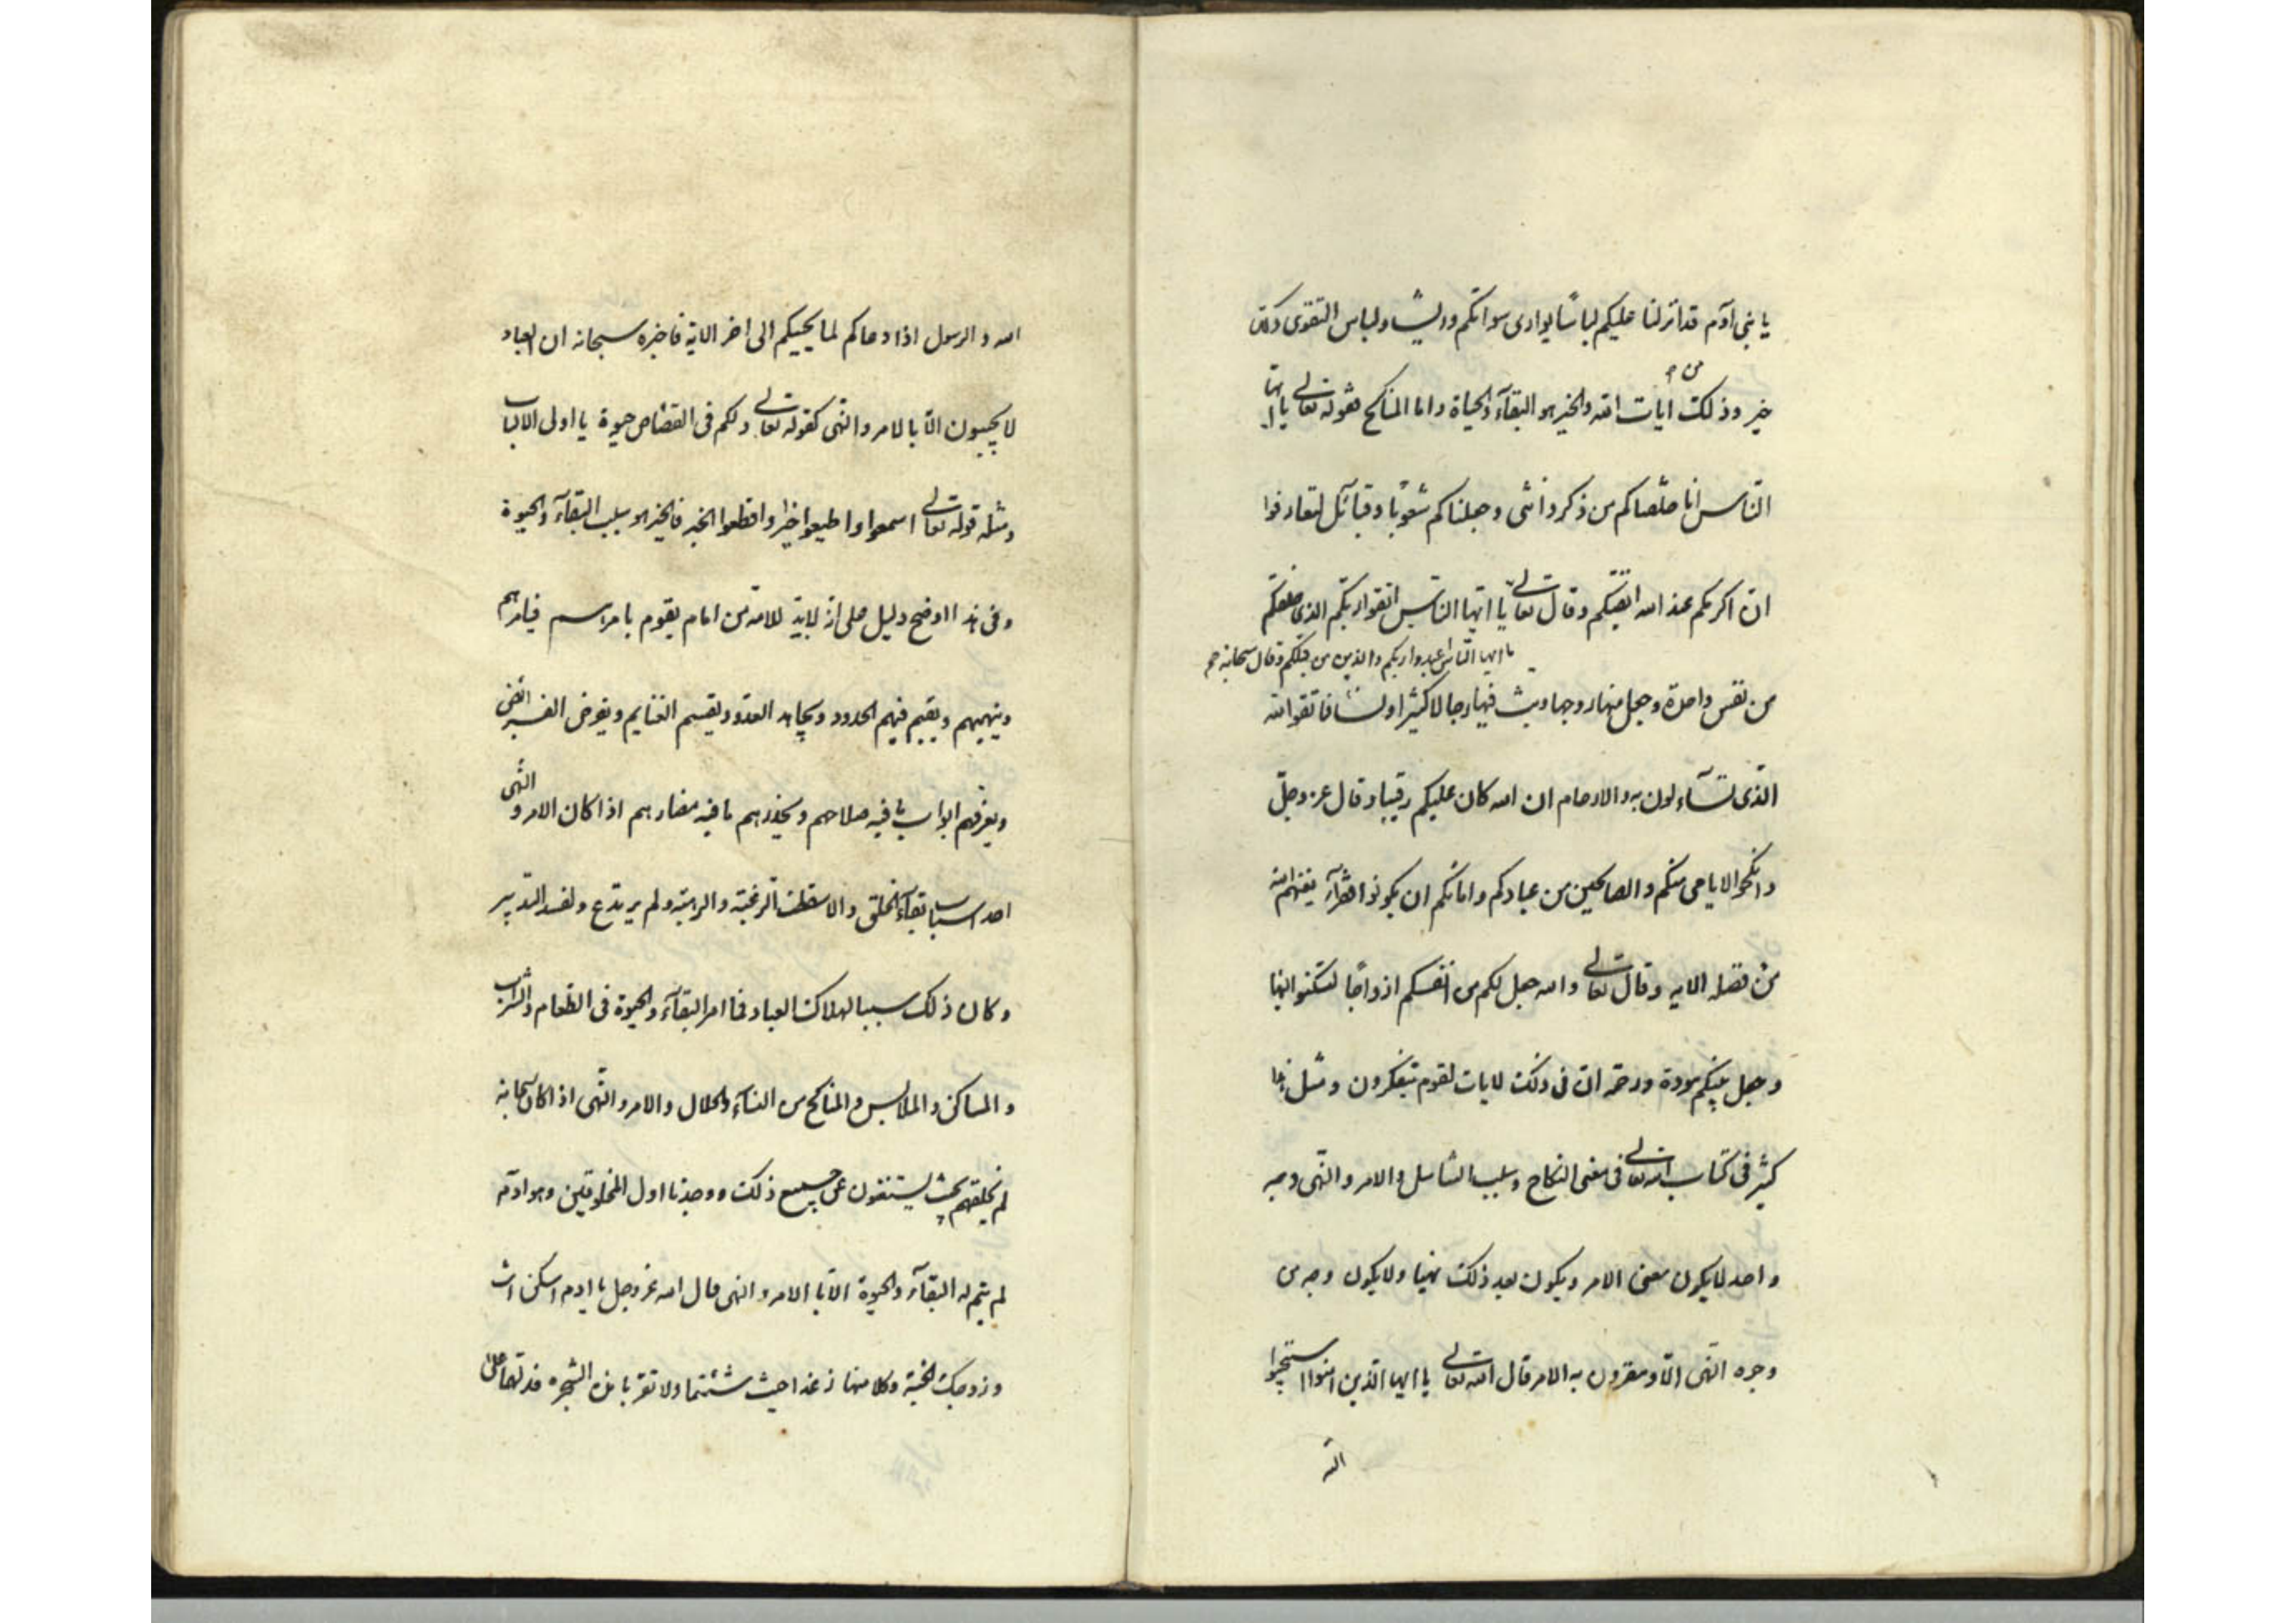 يا بنى آدم قد انزلنا عليكم لباسًا يوارى سوآتكم وريشا ولباس التقوى ذلك
خير وذلك من آيات الله والخير هو البقآء والحياة واما المناكح فقوله تعالى يا ايها
النّاس انا خلقناكم من ذكر وانثى وجعلناكم شعوبًا وقبآئل لتعارفوا
انّ اكرمكم عند الله اتقيكم وقال تعالى يا ايّها الناس اتقوا ربّكم الذى خلقكم
يا ايها النّاس اعبدوا ربكم والذين من قبلكم وقال سبحانه
من نفس واحدة وجعل منها زوجها وبث فيها رجالا كثيرا ونسا فاتقوا الله
الّذى تسآءلون به والارحام ان الله كان عليكم رقيبا وقال عز وجلّ
وانكحوا الايامى منكم والصالحين من عبادكم وامائكم ان يكونوا فقرآء يغنهم الله
من فضله الايه وقال تعالى والله جعل لكم من انفسكم ازواجًا لتسكنوا اليها
وجعل بينكم مودة ورحمة انّ فى ذلك لايات لقوم يتفكرون ومثل هذا
كثير فى كتاب الله تعالى فى معنى النكاح وسبب التناسل والامر والنّهى وجه
واحد لا يكون معنى الامر ويكون بعد ذلك نهيا ولا يكون وجه من
وجوه النّهى الّا ومقرون به الامر قال الله تعالى يا ايها الذين امنوا استجيبوا
الله
الله والرسول اذا دعاكم لما يحييكم الى اخر الاية فاخبره سبحانه ان العباد
لا يحيون الّا بالامر والنّهى كقوله تعالى ولكم فى القصاص حيوة يا اولى الالباب
ومثله قوله تعالى اسمعوا واطيعوا خيرا وافعلوا الخير فالخير هو سبب البقآء والحيوة
وفى هذا اوضح دليل على انّه لا بدّ للامّة من امام يقوم بامرهم فيامرهم
وينهيهم ويقيم فيهم الحدود ويجاهد العدو ويقسم الغنايم ويفرض الفرايض
ويعرفهم ابواب ما فيه صلاحهم ويحذرهم ما فيه مضارهم اذا كان الامر والنّهى
احد اسباب بقآء الخلق والا سقطت الرغبة والرهبة ولم يرتدع ولفسد التدبير
وكان ذلك سببا لهلاك العباد فى امر البقآء والحيوة فى الطّعام والشّراب
والمساكن والملابس والمناكح من النسآء والحلال والامر والنّهى اذا كان سبحانه
لم يخلقهم بحيث يستغنون عن جميع ذلك ووجدنا اول المخلوقين وهو آدم
لم يتم له البقآء والحيوة الّا بالامر والنهى قال الله عز وجل يا ادم اسكن انت
وزوجك الجنّة وكلا منها رغدا حيث شئتما ولا تقربا هذه الشجره فدلّهما على